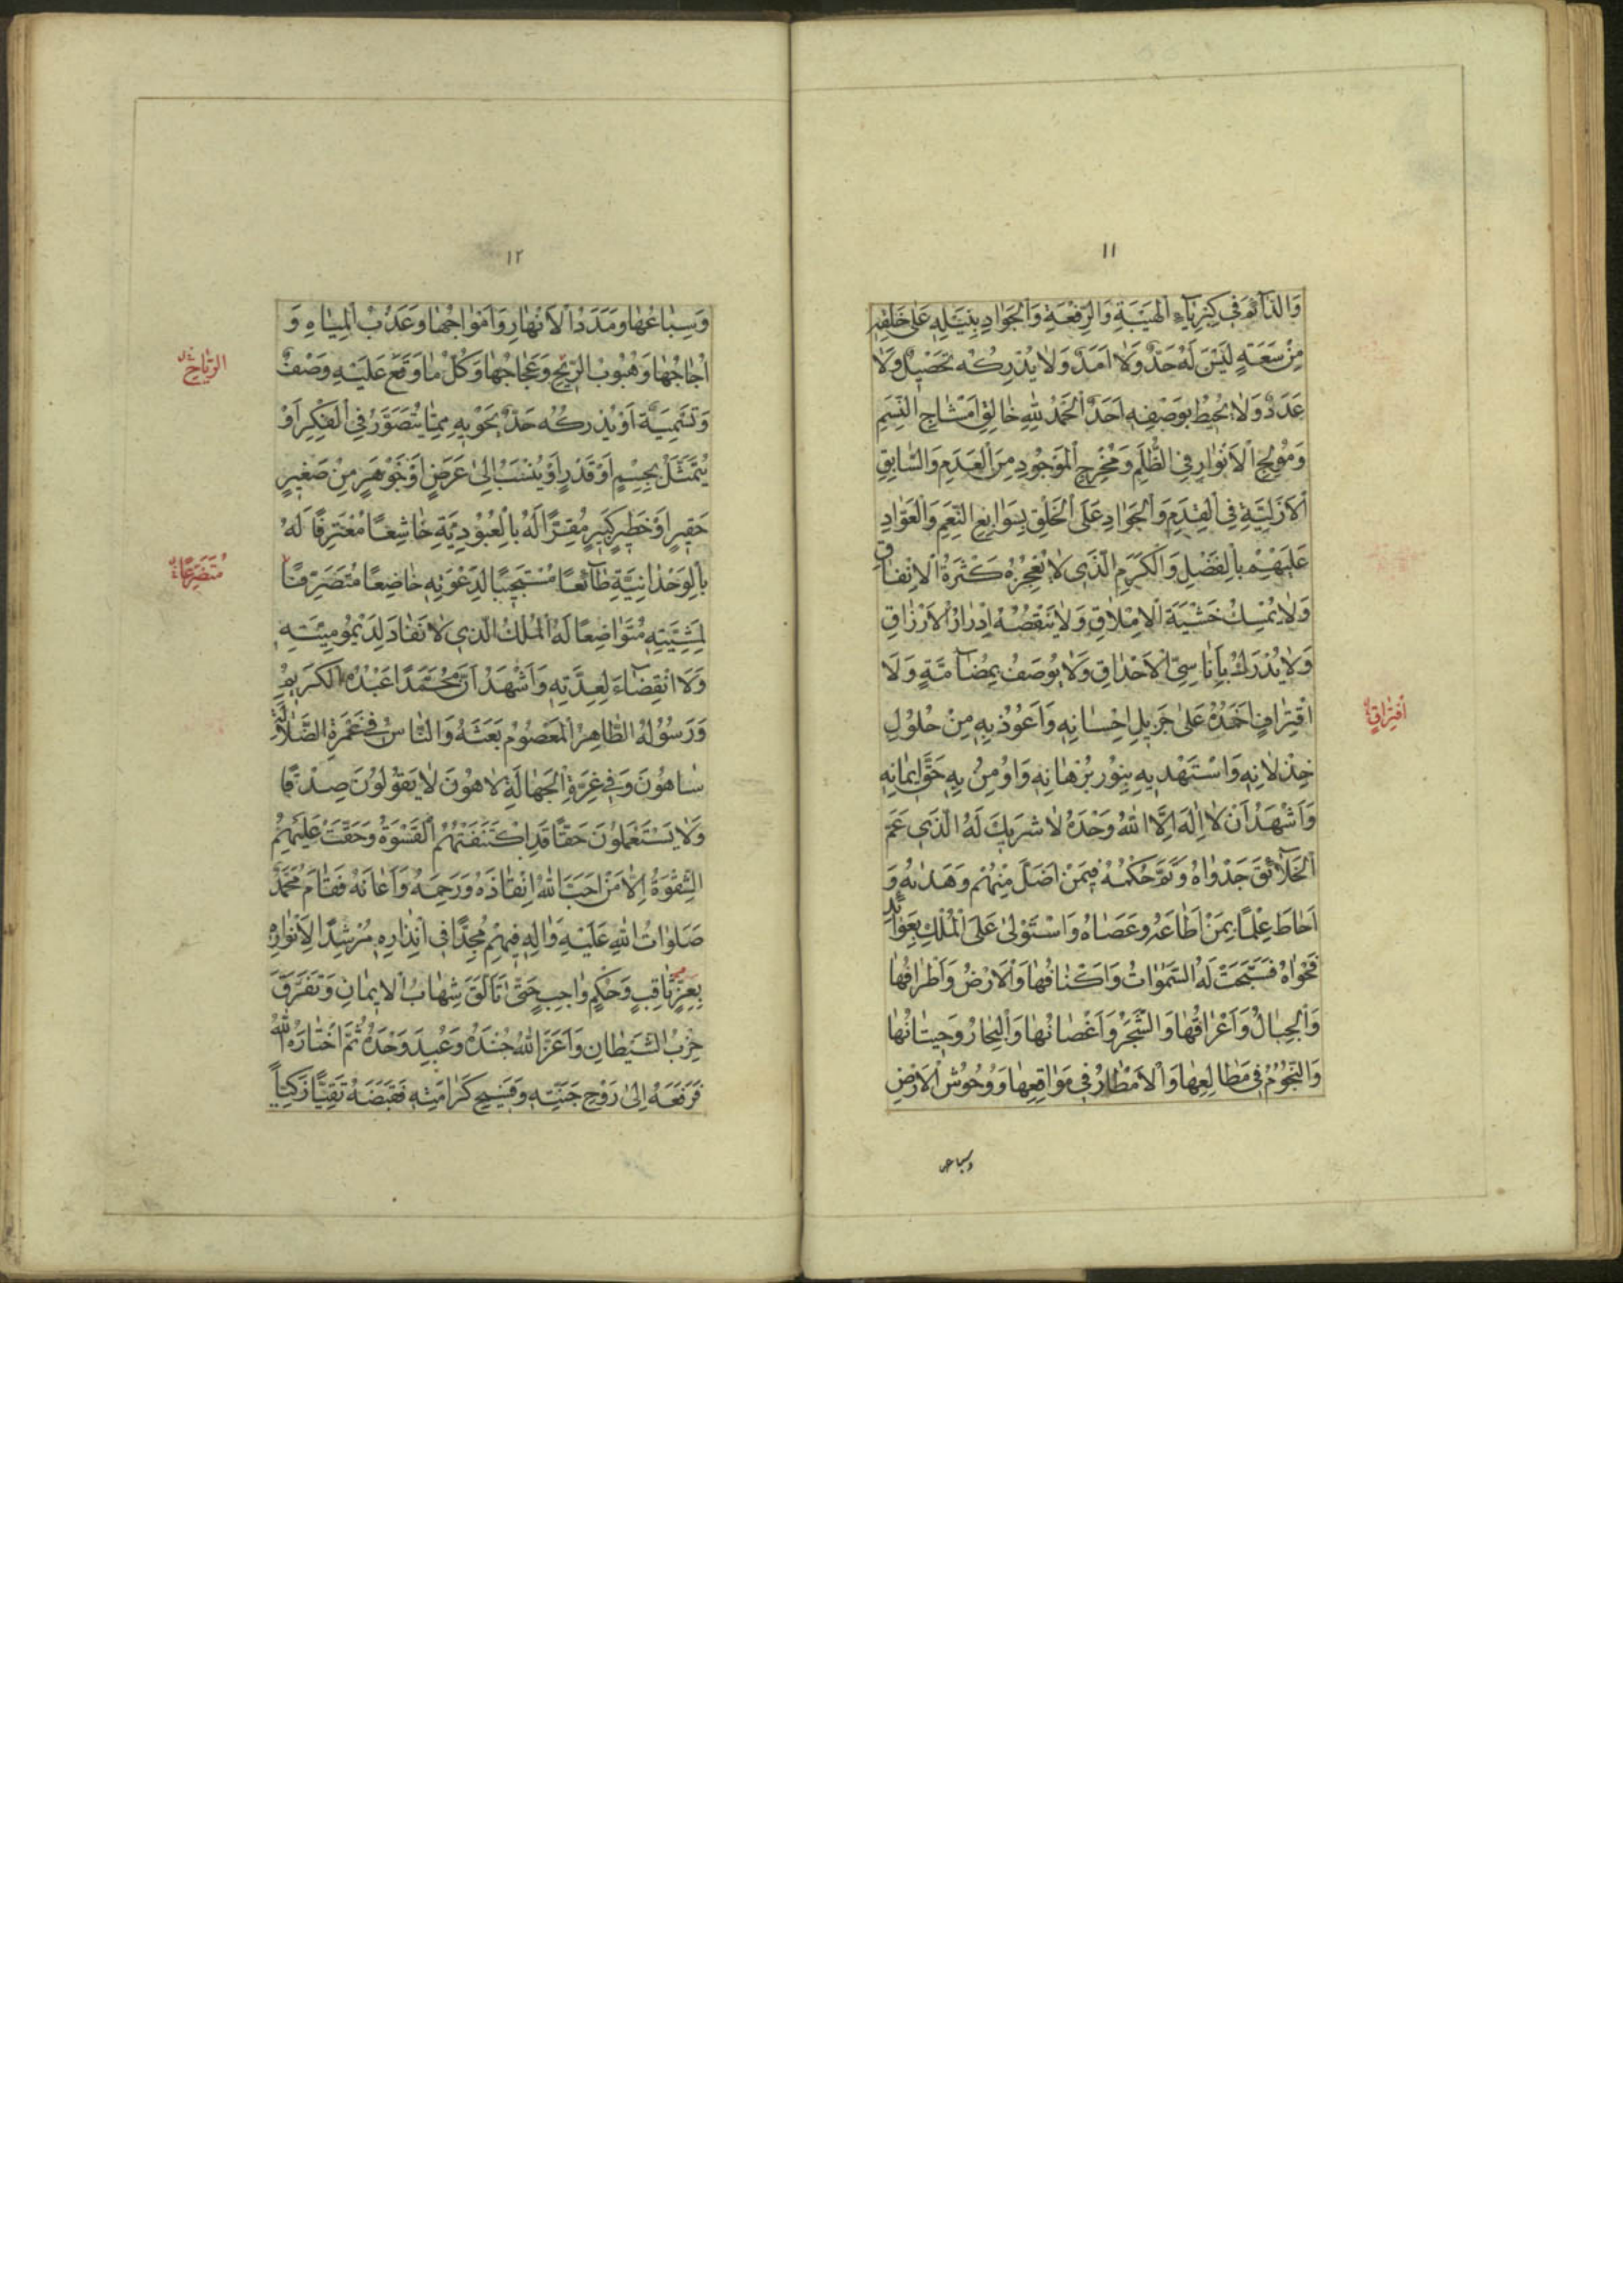 ١١
وَالدَّآئِمِ فِي كِبْرِيَآءِ الْهَيْبَةِ وَالرِّفْعَةِ وَالْجَوَادِ بِنَيْلِهِ عَلىٰ خَلْقِهِ
مِنْ سَعَةٍ لَيْسَ لَهُ حَدٌّ وَلاٰ اَمَدٌ وَلاٰ يُدْرِكُهُ تَحْصِيلٌ وَلاٰ
عَدَدٌ وَلاٰ يُحِيطُ بِوَصْفِهِ اَحَدٌ اَلْحَمْدُ لِلّٰهِ خٰالِقِ اَمْشٰاجِ النَّسَمِ
وَمُوْلِجِ الْاَنْوٰارِ فِي الظُّلَمِ وَمُخْرِجِ الْمَوْجُودِ مِنَ الْعَدَمِ وَالسّٰابِقِ
الْاَزَلِيَّةِ فِي الْقِدَمِ وَالْجَوَادِ عَلَى الْخَلْقِ بِسَوٰابِغِ النِّعَمِ وَالْعَوّٰادِ
عَلَيْهِمْ بِالْفَضْلِ وَالْكَرَمِ الَّذِي لاٰ يُعْجِزُهُ كَثْرَةُ الْاِنْفٰاقِ
وَلاٰ يُمْسِكُ خَشْيَةَ الْاِمْلاٰقِ وَلاٰ يَنْقُصُهُ اِدْرٰارُ الْاَرْزٰاقِ
وَلاٰ يُدْرَكُ بِاَنٰاسِيِّ الْاَحْدٰاقِ وَلاٰ يُوصَفُ بِمُضٰآمَّةٍ وَلَا
اقْتِرٰافٍ اَحْمَدُهُ عَلىٰ جَزِيلِ اِحْسٰانِهِ وَاَعُوذُ بِهِ مِنْ حُلُولِ
خِذْلاٰنِهِ وَاَسْتَهْدِيهِ بِنُورِ بُرْهٰانِهِ وَاُومِنُ بِهِ حَقَّ اِيمٰانِهِ
وَاَشْهَدُ اَنْ لاٰ اِلٰهَ اِلَّا اللّٰهُ وَحْدَهُ لاٰ شَرِيكَ لَهُ الَّذِي عَمَّ
الْخَلاٰئِقَ جَدْوٰاهُ وَتَمَّ حُكْمُهُ فِيمَنْ اَضَلَّ مِنْهُمْ وَهَدٰاهُ وَ
اَحٰاطَ عِلْمًا بِمَنْ اَطٰاعَهُ وَعَصٰاهُ وَاسْتَوْلىٰ عَلَى الْمُلْكِ بِعَوٰائِدِ
فَحْوٰاهُ فَسَبَّحَتْ لَهُ السَّمٰوٰاتُ وَاَكْنٰافُهٰا وَالْاَرْضُ وَاَطْرٰافُهٰا
وَالْجِبٰالُ وَاَعْرٰاقُهٰا وَالشَّجَرُ وَاَغْصٰانُهٰا وَالْبِحٰارُ وَحِيتٰانُهٰا
وَالنُّجُومُ فِي مَطٰالِعِهٰا وَالْاَمْطٰارُ فِي مَوٰاقِعِهٰا وَوُحُوشُ الْاَرْضِ
وسباعها
اقْتِرٰاقٍ
١٢
وَسِبٰاعُهٰا وَمَدَدُ الْاَنْهٰارِ وَاَمْوٰاجُهٰا وَعَذْبُ الْمِيٰاهِ وَ
اُجٰاجُهٰا وَهُبُوبُ الرِّيحِ وَعَجٰاجُهٰا وَكُلُّ مٰا وَقَعَ عَلَيْهِ وَصْفٌ
وَتَسْمِيَةٌ اَوْ يُدْرِكُهُ حَدٌّ يَحْوِيهِ مِمّٰا يُتَصَوَّرُ فِي الْفِكْرِ اَوْ
يُتَمَثَّلُ بِجِسْمٍ اَوْ قَدْرٍ اَوْ يُنْسَبُ اِلىٰ عَرَضٍ اَوْ جَوْهَرٍ مِنْ صَغِيرٍ
حَقِيرٍ اَوْ خَطِيرٍ كَبِيرٍ مُقِرًّا لَهُ بِالْعُبُودِيَّةِ خٰاشِعًا مُعْتَرِفًا لَهُ
بِالْوَحْدٰانِيَّةِ طٰآئِعًا مُسْتَجِيبًا لِدَعْوَتِهِ خٰاضِعًا مُتَصَرِّفًا
لِمَشِيَّتِهِ مُتَوٰاضِعًا لَهُ الْمُلْكُ الَّذِي لاٰ نَفٰادَ لِدَيْمُومِيَّتِهِ
وَلَا انْقِضٰآءَ لِعِدَّتِهِ وَاَشْهَدُ اَنَّ مُحَمَّدًا عَبْدُهُ الْكَرِيمُ
وَرَسُولُهُ الطّٰاهِرُ الْمَعْصُومُ بَعَثَهُ وَالنّٰاسُ فِي غَمْرَةِ الضَّلاٰلَةِ
سٰاهُونَ وَفِي غِرَّةِ الْجَهٰالَةِ لاٰهُونَ لاٰ يَقُولُونَ صِدْقًا
وَلاٰ يَسْتَعْمِلُونَ حَقًّا قَدِ اكْتَنَفَتْهُمُ الْقَسْوَةُ وَحَقَّتْ عَلَيْهِمُ
الشِّقْوَةُ اِلاّٰ مَنْ اَحَبَّ اللّٰهُ اِنْقٰاذَهُ وَرَحِمَهُ وَاَعٰانَهُ فَقٰامَ مُحَمَّدٌ
صَلَوٰاتُ اللّٰهِ عَلَيْهِ وَاٰلِهِ فِيهِمْ مُجِدًّا فِي اِنْذٰارِهِ مُرْشِدًا لِاَنْوٰارِهِ
بِعَزْمٍ ثٰاقِبٍ وَحُكْمٍ وٰاجِبٍ حَتّٰى تَاَلَّقَ شِهٰابُ الْاِيمٰانِ وَتَفَرَّقَ
حِزْبُ الشَّيْطٰانِ وَاَعَزَّ اللّٰهُ جُنْدَهُ وَعُبِدَ وَحْدَهُ ثُمَّ اخْتٰارَهُ اللّٰهُ
فَرَفَعَهُ اِلىٰ رَوْحِ جَنَّتِهِ وَفَسِيحِ كَرٰامَتِهِ فَقَبَضَهُ تَقِيًّا زَكِيًّا
الرِّيٰاحِ
مُتَضَرِّعًا